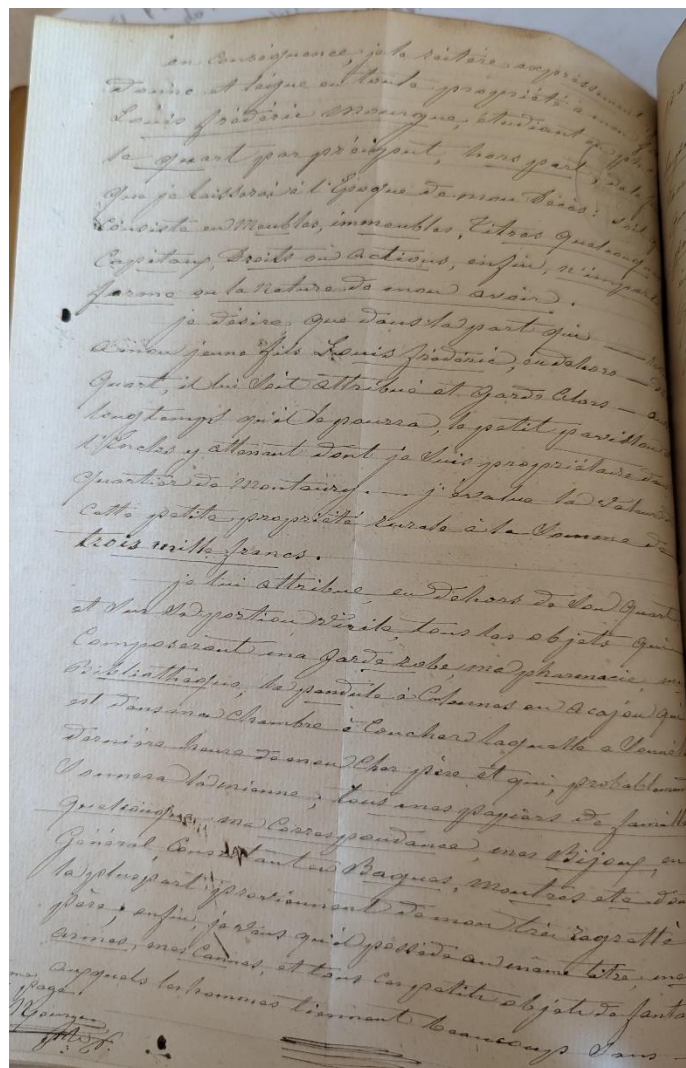 en conséquence, je le réitère expressement,
donne et lègue en toute propriété à mon
Louis frédéric Mourgue, étudiant en pha
le quart par préciput, hors part, de la
que je laisserai à l'Époque de mon Décès; soit
Consiste en Meubles, immeubles, Titres quelconq
Capitaux, Droits ou Actions, enfin, n'importe
forme ou la Nature de mon avoir.
je désire que dans la part qui
à mon jeune fils Louis frédéric, en dehors — de
quart, il lui soit attribué et garde Alors — au
longtemps qu'il le pourra, le petit pavillon
l'Enclos y attenant dont je suis propriétaire dans
quartier de Montaury — j'évalue la Valeur
cette petite propriété rurale à la Somme de
trois mille francs.
je lui attribue, en dehors de Son quart
et Sur Sa portion Virile, tous les objets qui
Composeront ma garde robe, ma pharmacie, ma
Bibliothèque, la pendule à Colonnes en Acajou qui
est dans ma Chambre à Coucher laquelle a Sonné
dernière heure de mon Cher père et qui, probablement
Sonnera la mienne; tous mes papiers de famille
quelconque, ma Correspondance, mes Bijoux, en
Général, Consistant en Bagues, Montres etc do
la plus part proviennent de mon très regretté
père; enfin, je veux qu'il possède au même titre, mes
armes, mes Cannes, et tous ces petits objets de fanta
auxquels les hommes tiennent beaucoup Sans —
page.
Mourgue